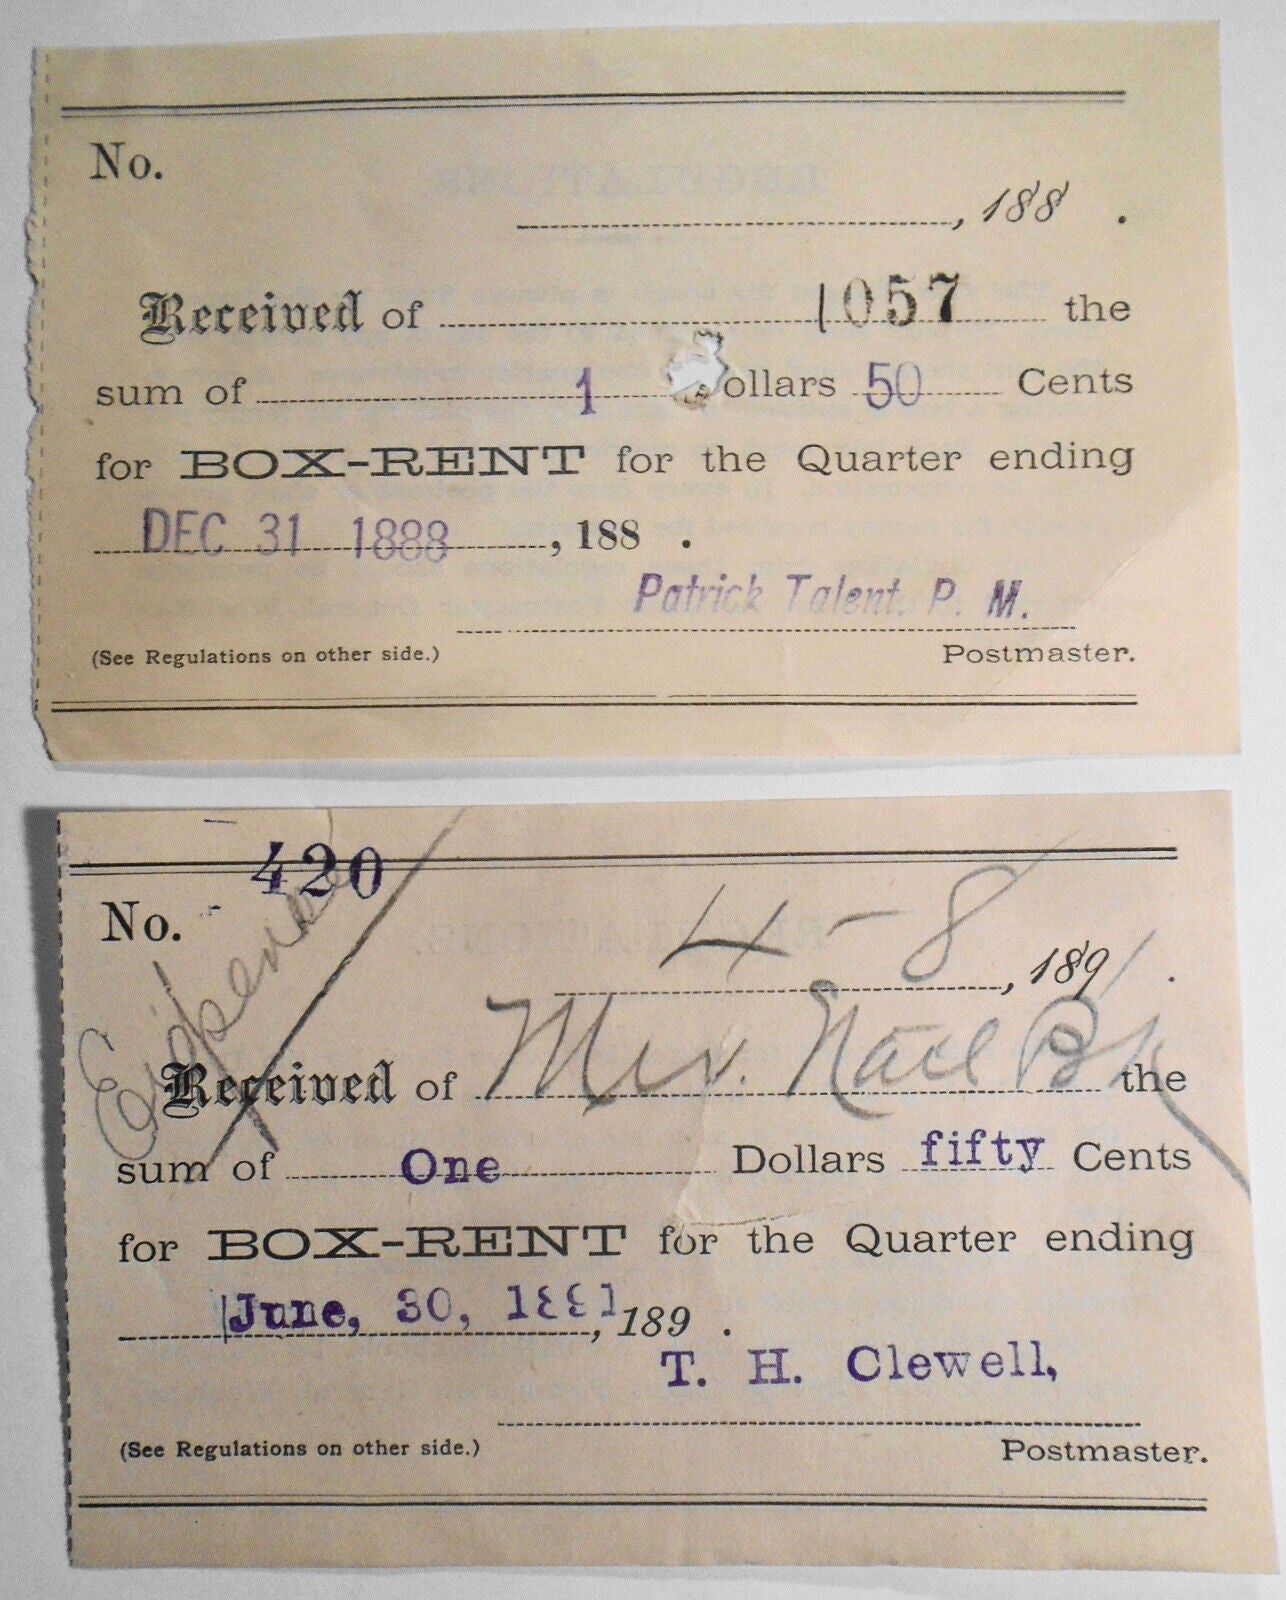 No.
, 188 .
Received of 1057 the
sum of 1 Dollars 50 Cents
for BOX-RENT for the Quarter ending
DEC 31 1888, 188 .
Patrick Talent. P. M.
(See Regulations on other side.) Postmaster.
420
No.
4-8, 1891.
Expense
Received of Mer. Natl Bk the
sum of One Dollars fifty Cents
for BOX-RENT for the Quarter ending
June, 30, 1891, 189 .
T. H. Clewell,
(See Regulations on other side.) Postmaster.